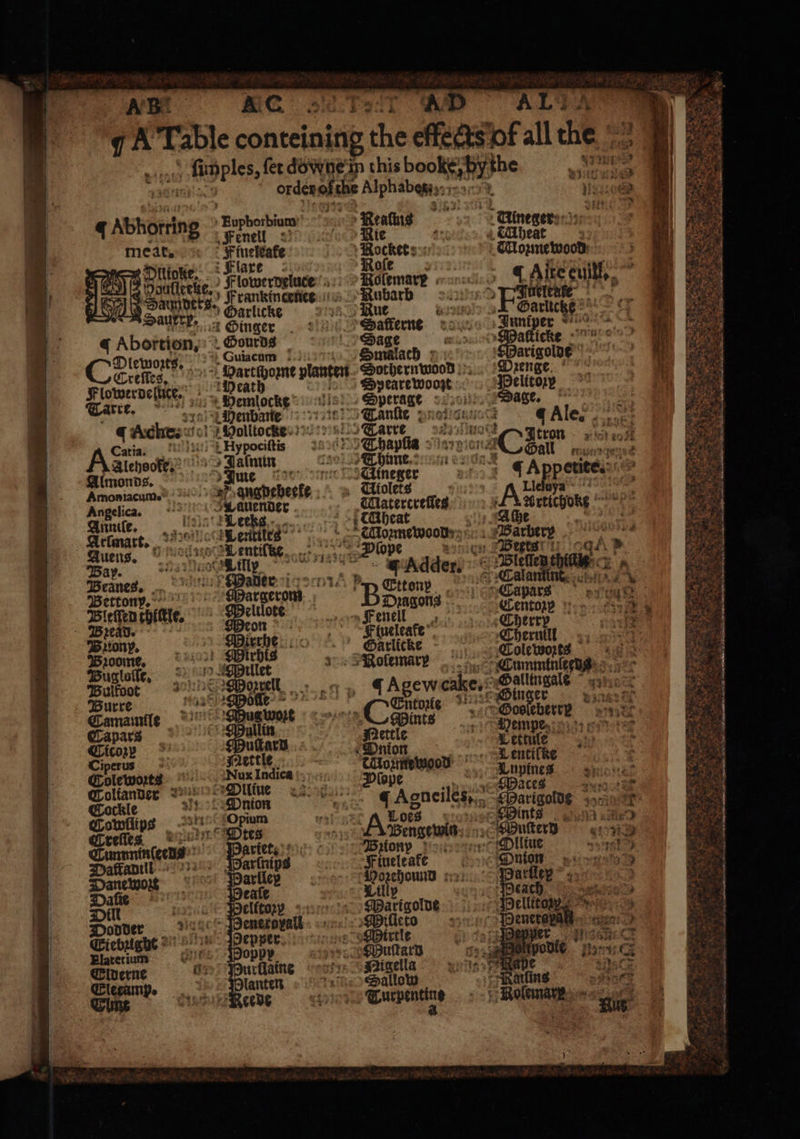 AB AC AD AL
¶ A Table conteining the effects of all the
simples, set downe in this booke, by the
order of the Alphabet.
¶ Abhorring
meat.
Housleeke.
Saunders.
Sauery.
¶ Abortion,
Coleworts.
Cresses.
Flowerdeluce.
Tarre.
¶ Aches
Acatia.
Alehoofe.
Almonds.
Amoniacum.
Angelica.
Annise.
Arsmart.
Auens.
Bay.
Beanes.
Bettony.
Blessed thistle.
Bread.
Briony.
Broome.
Buglosse.
Bulfoot
Burre
Camamile
Capars
Cicory
Ciperus
Coleworts
Coliander
Cockle
Cowslips
Cresses
Cumminseeds
Daffadill
Danewort
Dasie
Dill
Dodder
Eiebright
Elaterium
Elderne
Elecamp.
Eung
Euphorbium
Fenell
Fiueleafe
Flare
Flowerdeluce
Frankincense
Garlicke
Ginger
Gourds
Guiacum
Hartshorne planten
Heath
Hemlocke
Henbane
Hollitocke
Hypocistis
Jalmin
Jue
Langdebeefe
Lauender
Leekes
Lentiles
Lentilke
Lilly
Mader
Margerom
Mellilote
Meon
Mirche
Mirhis
Millet
Morrell
Mosse
Mugwort
Mullin
Mustard
Nettle
Nux Indica
Olliue
Onion
Opium
Otes
Pariet.
Parsnips
Parsley
Pease
Pelitory
Peneroyall
Pepper
Poppy
Purslaine
Planten
Reede
Reasins
Rie
Rocket
Rose
Rosemary
Rubarb
Rue
Safferne
Sage
Smalach
Sothernwood
Spearewoort
Sperage
Tansie
Tarre
Thapsia
Thime.
Uineger
Uiolets
Watercresses
Wheat
Wormewood
Plope
¶ Adder.
Bittony
Dragons
Fenell
Fiueleafe
Garlicke
Rosemary
¶ Agew cake.
Centorie
Mints
Nettle
Onion
Wormewood
Plope
¶ Agneiles,
Aloes
Bengewin
Briony
Fiueleafe
Horehound
Lilly
Marigolde
Misleto
Mirtle
Mustard
Nigella
Sallow
Turpentine
a
Uineger
Wheat
Wormewood
¶ Aire euill,
Fiueleafe
Garlicke
Juniper
Masticke
Marigolde
Orenge
Pelitory
Sage.
¶ Ale.
Citron
Gall
¶ Appetite.
Alleluya
Artichoke
Ashe
Barbery
Beets
Blessed thistle
Calamint.
Capars
Centory
Cherry
Cheruill
Coleworts
Cumminseeds
Gallingale
Ginger
Gooseberry
Hempe.
Lettuse
Lentilke
Lupines
Maces
Marigolds
Mints
Musterd
Olliue
Onion
Parsley
Peach
Pellitory
Peneroyall
Pepper
Polipodie
Rape
Raisins
Rosemary
Rue